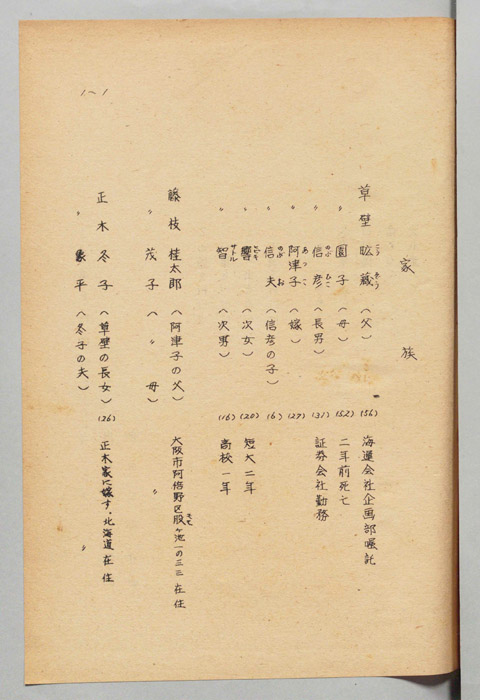 家族
草壁肱蔵(父)(56)海運会社企画部嘱託
こうぞう
〃園子(母)(52)二年前死亡
〃信彦(長男)(31)証券会社勤務
のぶひこ
〃阿津子(嫁)(27)
あつこ
〃信夫(信彦の子)(6)
のぶお
〃響(次女)(20)短大二年
ヒビキ
〃智(次男)(16)高校一年
サトル
藤枝桂太郎(阿津子の父)大阪市阿倍野区股ヶ池一の三三在住
茂子(〃母)〃
正木冬子(草壁の長女)(26)正木家に嫁す。北海道在住
〃象平(冬子の夫)〃